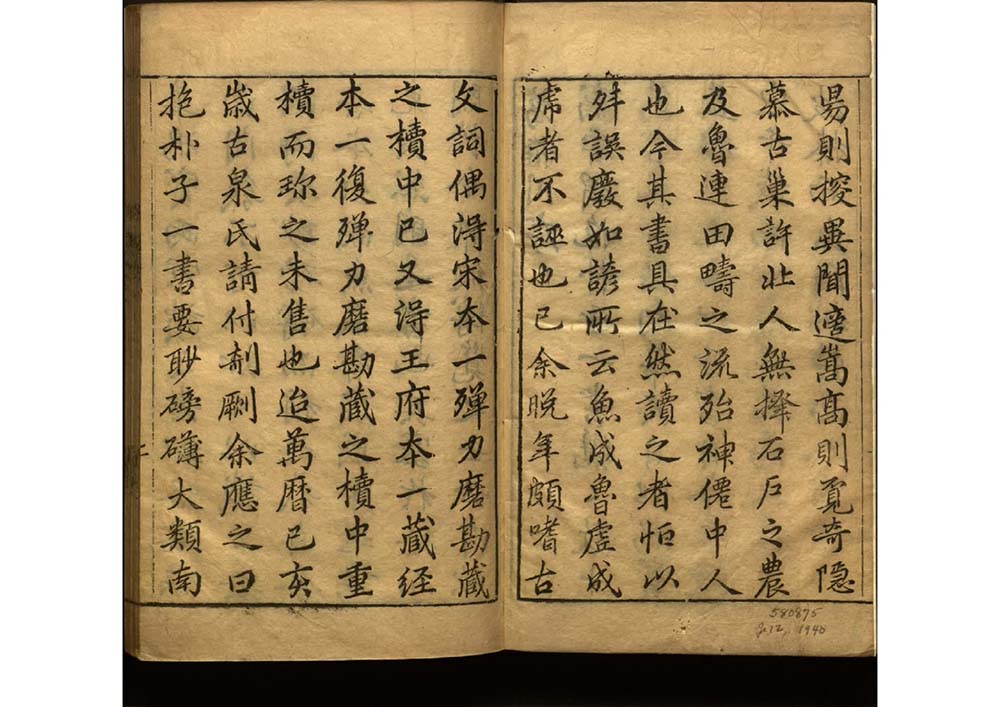 昜則搲異聞適嵩高則覓奇隱
慕古巢許北人無擇石戶之農
及魯連田疇之流殆神僊中人
也今其書具在然讀之者恒以
舛誤廢如諺所云魚成魯虛成
虎者不誣也已余晚年頗嗜古
文詞偶淂宋本一殫力磨勘藏
之櫝中已又淂王府本一藏経
本一復殫力磨勘藏之櫝中重
櫝而珎之未售也迨萬曆己亥
歲古泉氏請付剞劂余應之曰
抱朴子一書要眇磅礴大類南
580875
1940